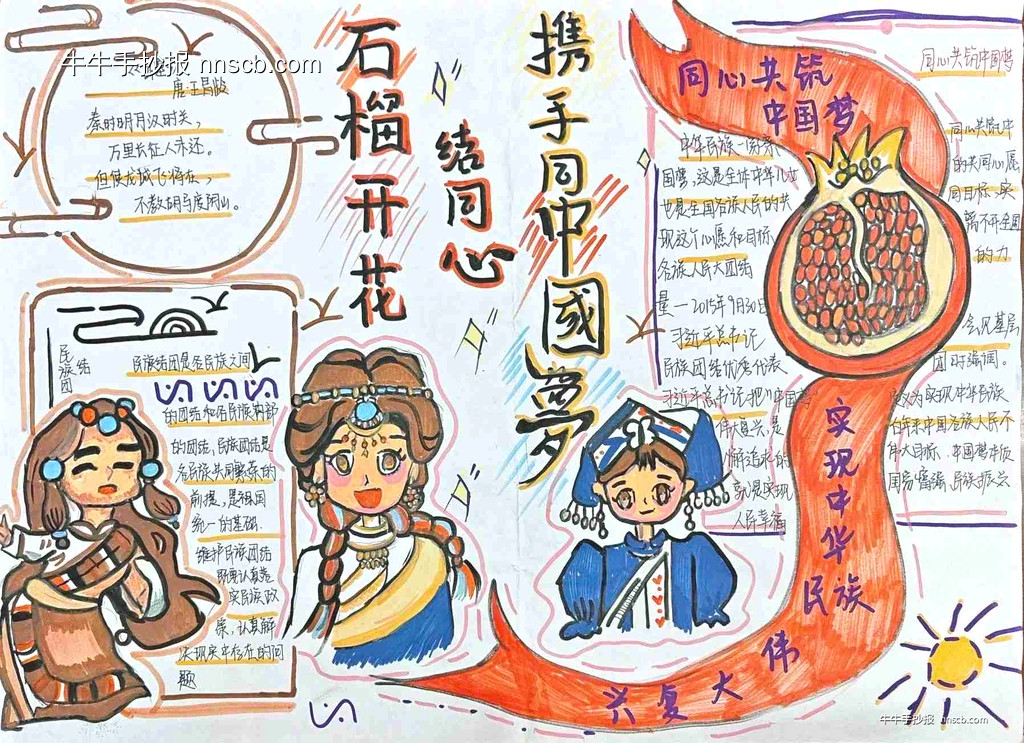 牛牛手抄报 nnscb.com
唐·王昌龄
秦时明月汉时关，
万里长征人未还。
但使龙城飞将在，
不教胡马度阴山。
石榴开花
结同心
携手同中國夢
民族团结
民族结团是各民族之间
的团结和各民族内部
的团结，民族团结是
各民族共同繁荣的
前提，是祖国
统一的基础
维护民族团结
实民族政
策，认真解
决现实中存在的问
题
同心共筑
中国梦
国梦，这是全体中华儿女
也是全国各族人民的共
现这个心愿和目标
各族人民大团结
量一2015年9月30日
习近平总书记
民族团结优秀代表
习近平总书记把
伟大复兴，是
就是实现
人民幸福
同心共筑中国梦
同心共筑中
的共同心愿
同目标，实
离不开全国
的力
会见基层
团时强调。
定义为实现中华民族
百年来中国各族人民不
伟大目标，中国梦中成
国旁富强、民族振兴
实现中华
民族
伟
大复兴
牛牛手抄报 nnscb.com